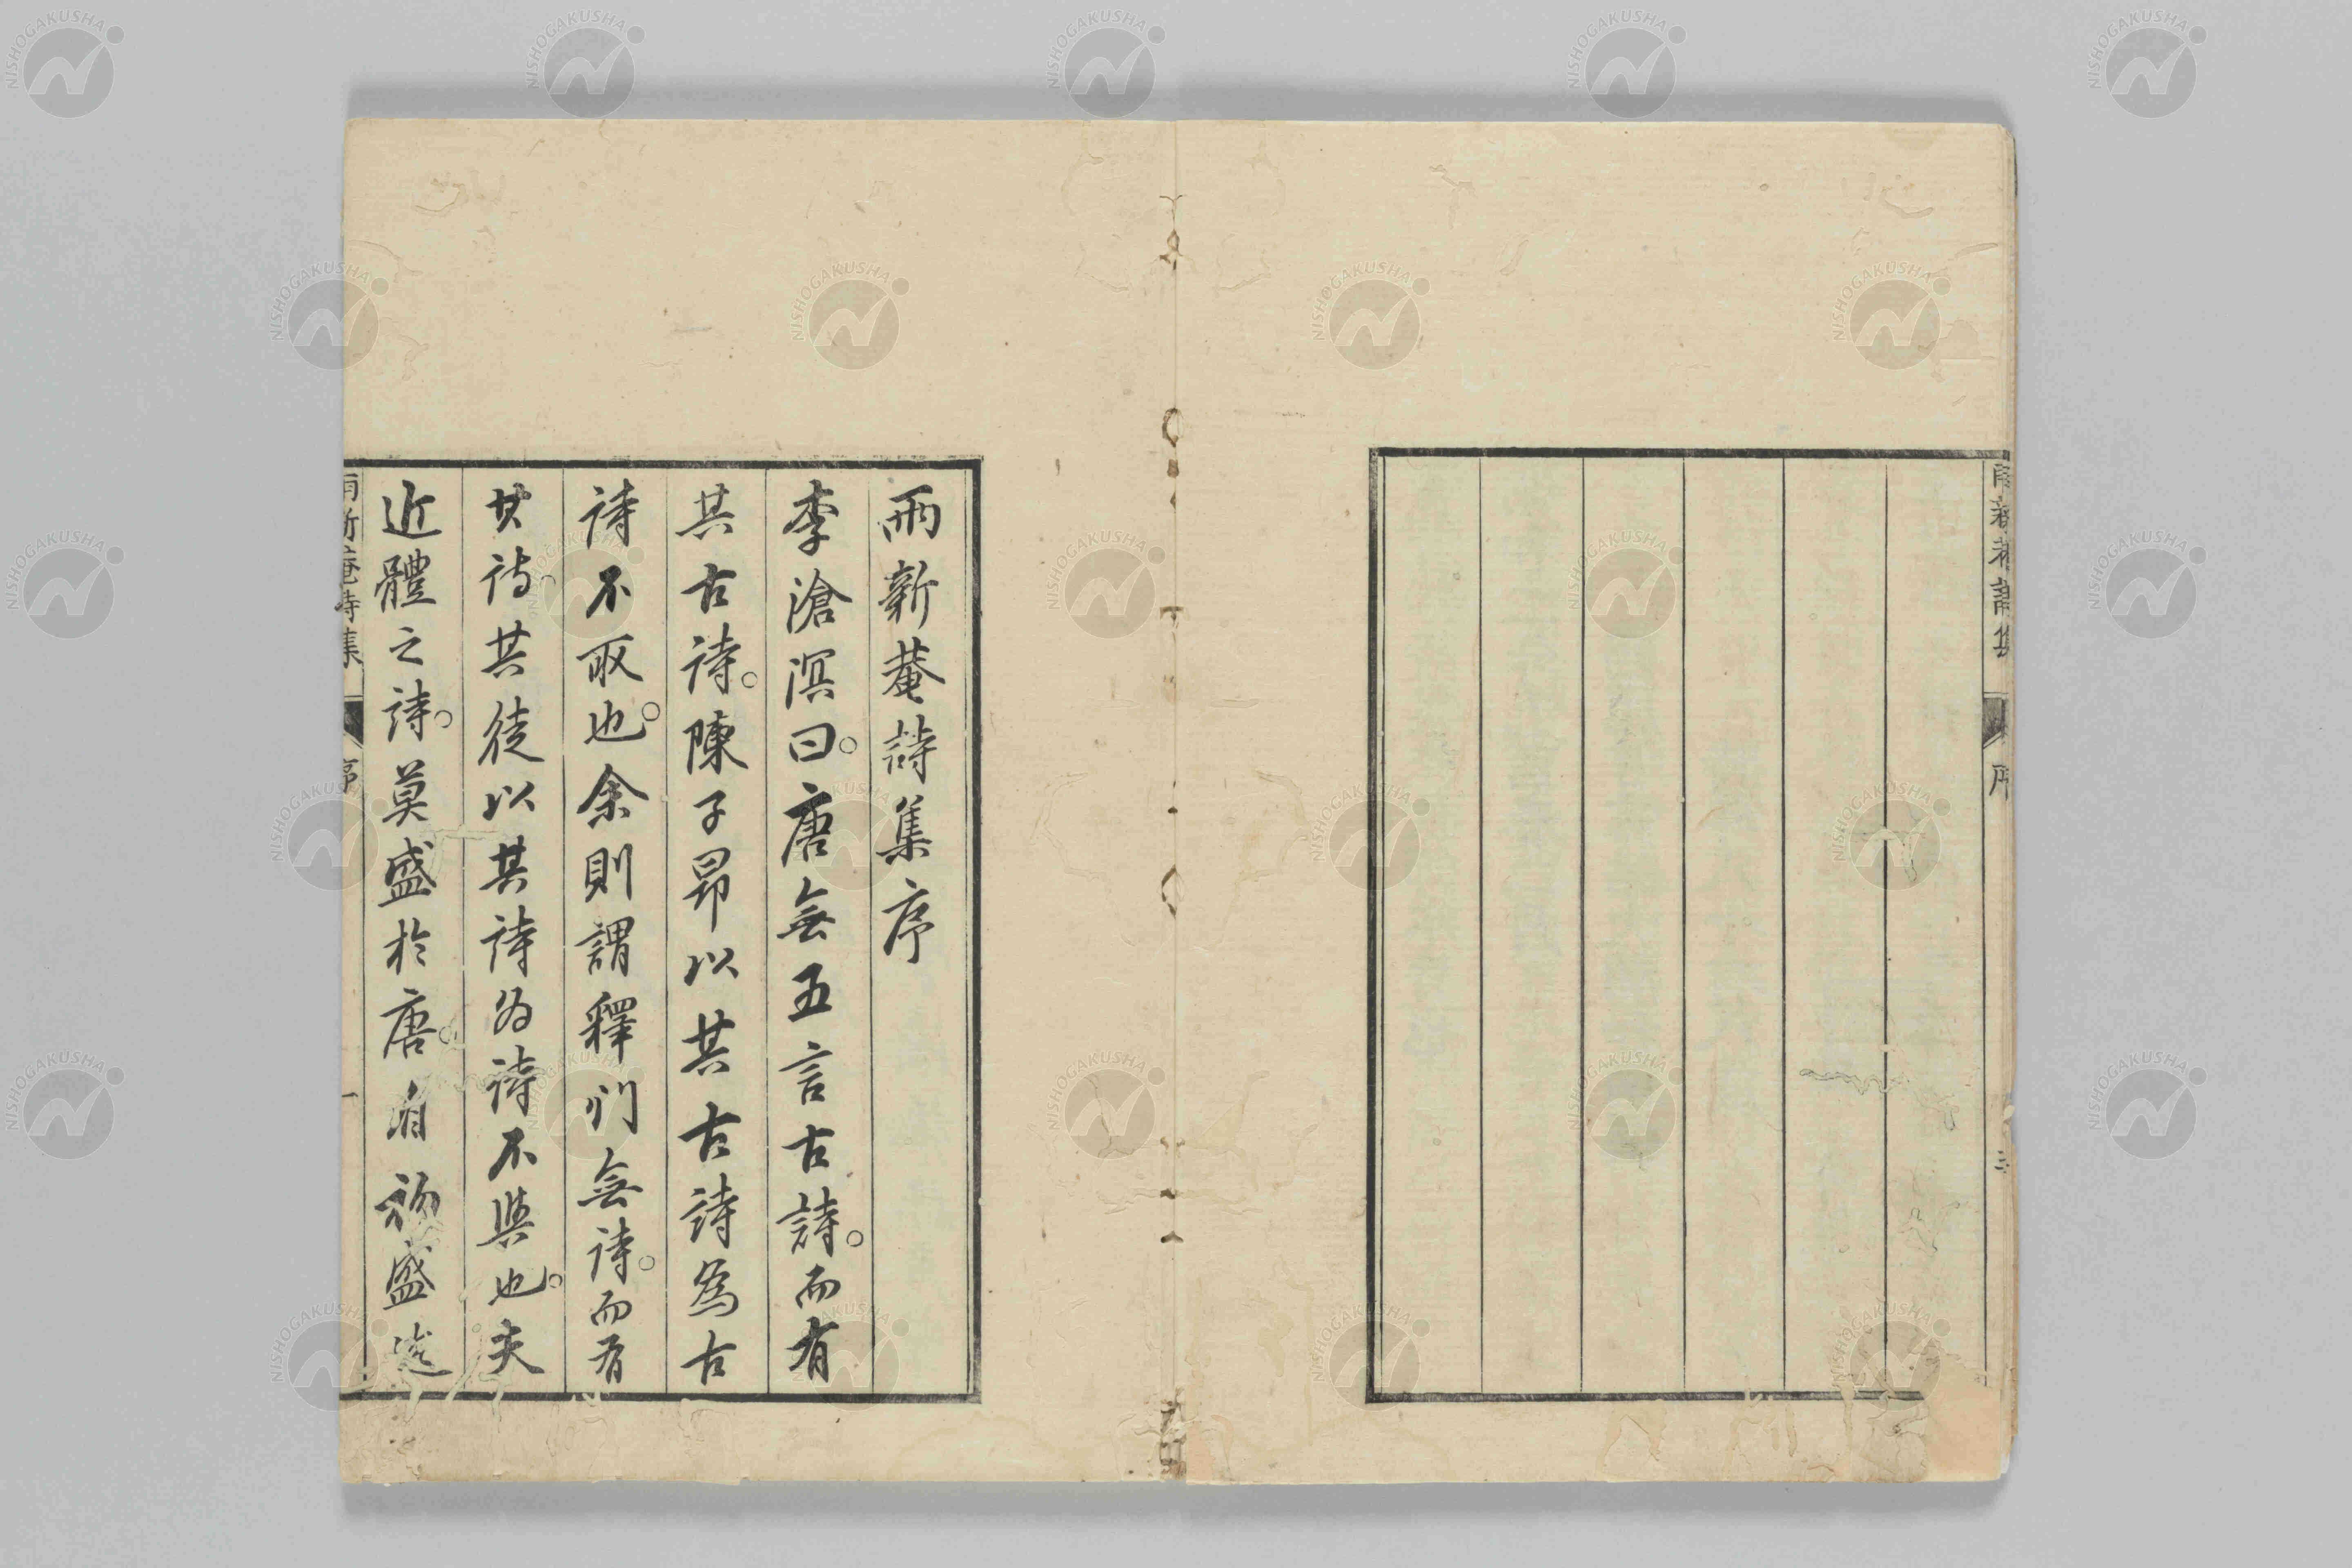 雨新菴詩集
序
雨新菴詩集序
李滄溟曰。唐無五言古詩。而有
其古詩。陳子昂以其古詩為古
詩不取也。余則謂釋門無詩。而有
其詩。其徒以其詩為詩不與也。夫
近體之詩。莫盛於唐。自初盛
雨新菴詩集
序
一